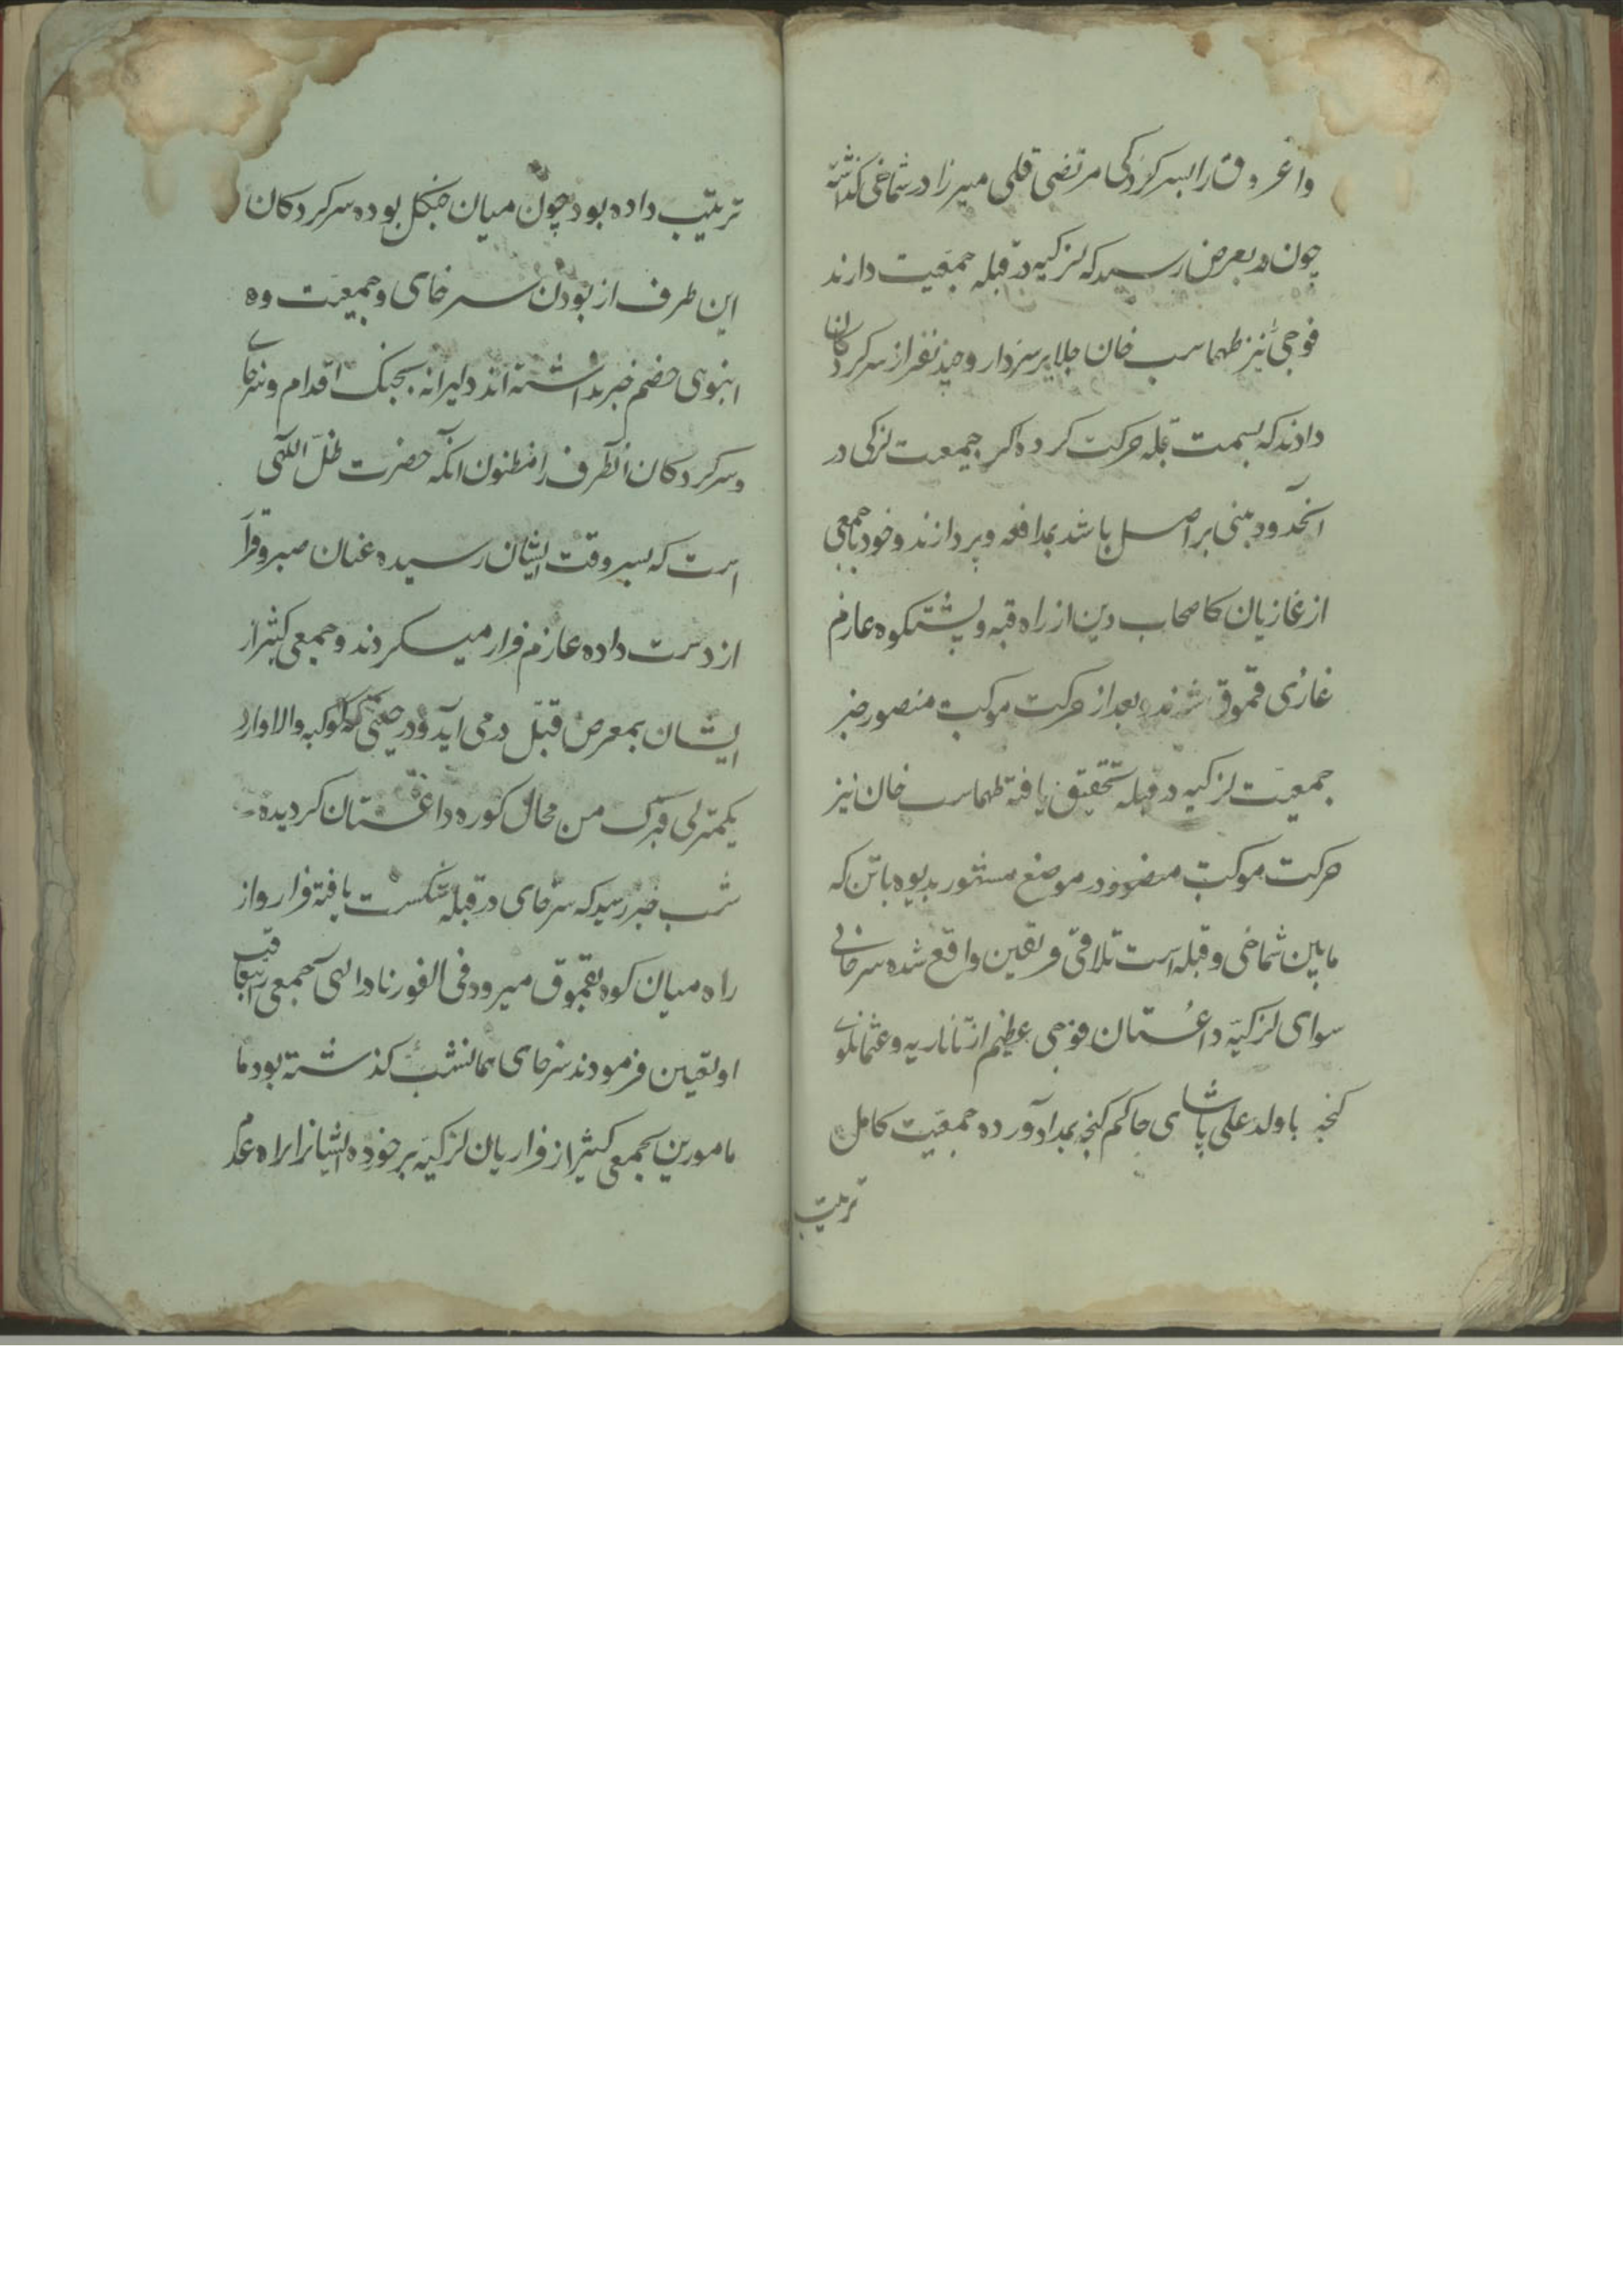 واغروق را بسرکردکی مرتضی قلی میرزا در شماخی کذاشته
چون در بعرض رسید که لزکیه در قبله جمعیت دارند
فوجی نیز طهماسب خان جلایر سردار و چند نفر از سرکردکان
دادند که بسمت قبله حرکت کرده اکر جمعیت لزکی در
آنحدود مبنی بر اصل باشد بمدافعه پردازند و خود با جمعی
از غازیان کاصحاب دین از راه قبه و پشتکوه عازم
غازی قموق شدند بعد از حرکت موکب منصور خبر
جمعیت لزکیه در قبله تحقیق یافته طهماسب خان نیز
حرکت موکب منصور در موضع مشهور بدیوه باتن که
مابین شماخی و قبله است تلاقی فریقین واقع شده سرخای
سوای لزکیه داغستان فوجی عظیم از تاتاریه و عثمانلوی
کنجه باولد علی پاشای حاکم کنجه بمداد آورده جمعیت کامل
ترتیب
ترتیب داده بود چون میان جنکل بوده سرکردکان
این طرف از بودن سرخای و جمعیت وه
انبوهی خصم خبر نداشته اند دلیرانه بجنک اقدام و سرخای
و سرکردکان آنطرف را مظنون آنکه حضرت ظل اللهی
است که بسروقت ایشان رسیده عنان صبر و قرار
از دست داده عازم فرار میکردند و جمعی کثیر از
ایشان بمعرض قتل در می آید و در حینی که کوکبه والا وارد
یکمنزلی من محال کوره داغستان کردیده
شب خبر رسید که سرخای در قبله شکست یافته فرار و از
راه میان کوه بقموق میرود فی الفور نادر الهی جمعی بتعاقب
او تعیین فرمودند سرخای همانشب کذشته بود ما
مامورین بجمعی کثیر از فراریان لزکیه برخورده ایشانرا براه عدم